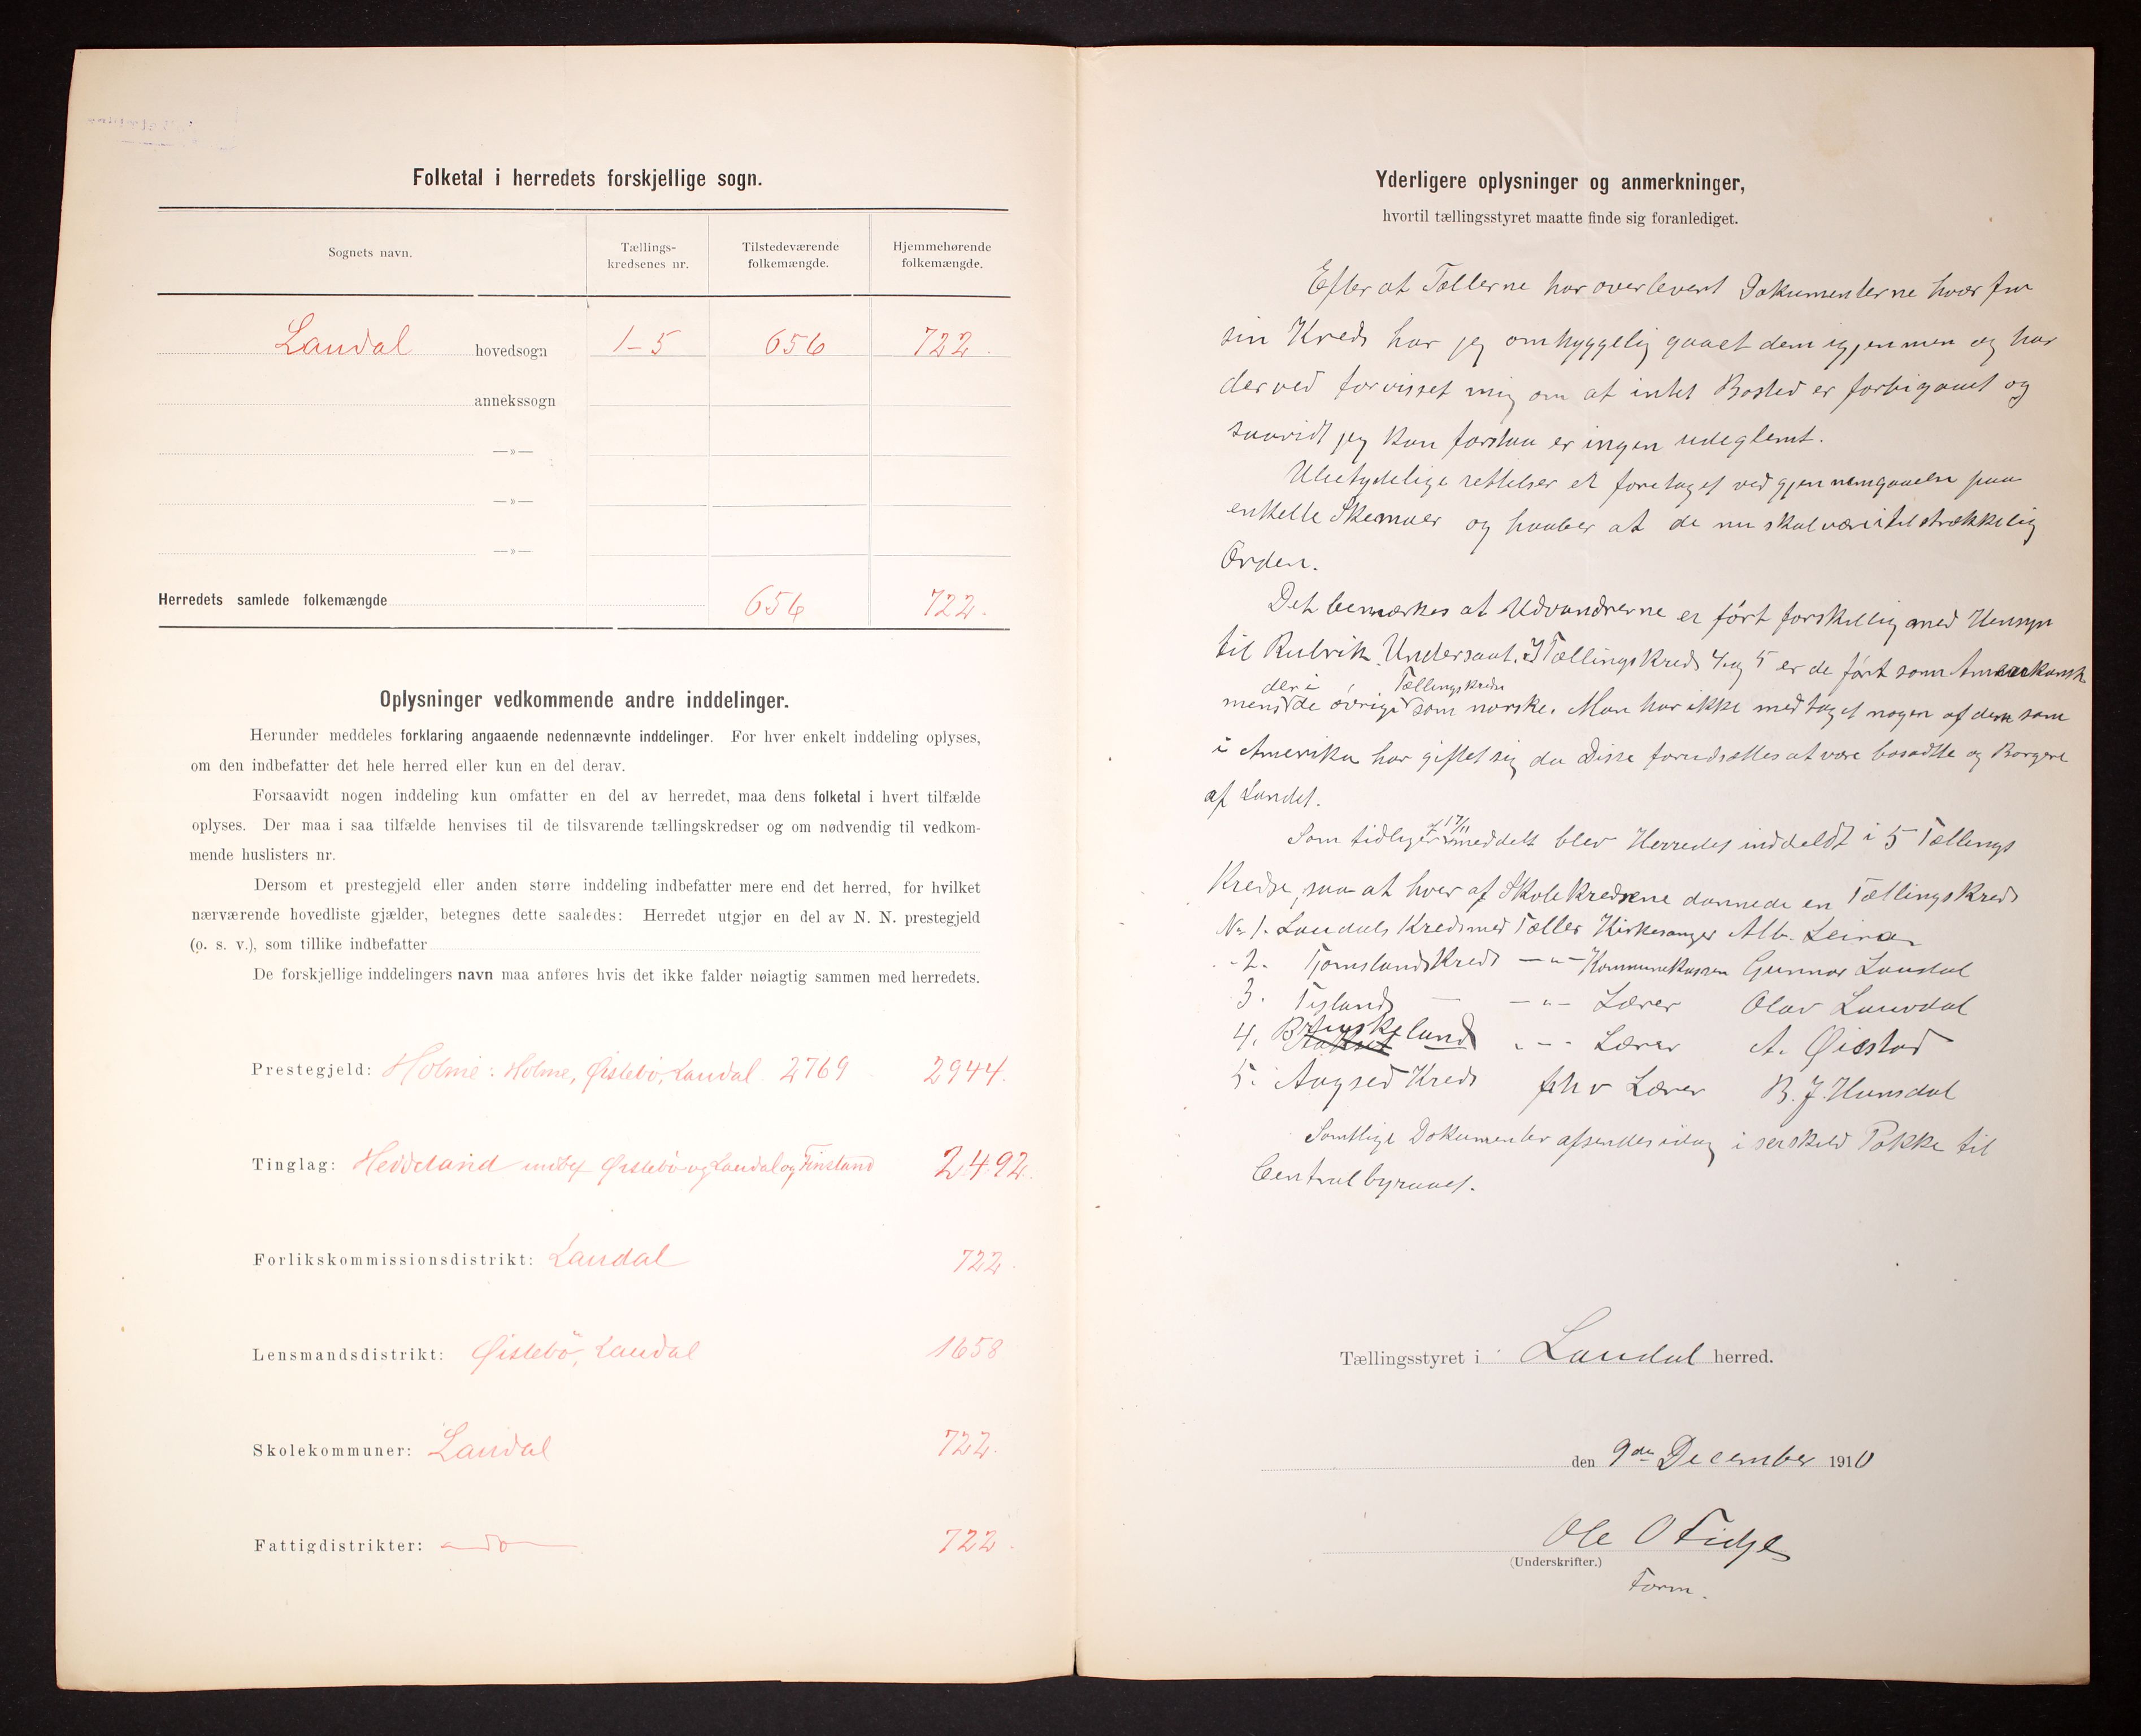 Folketal i herredets forskjellige sogn.
Sognets navn. Tællings-kredsenes nr. Tilstedeværende folkemængde. Hjemmehørende folkemængde.
Laudal hovedsogn 1-5 656 722.
annekssogn
—»—
—»—
—»—
Herredets samlede folkemængde 656 722.
Oplysninger vedkommende andre inddelinger.
Herunder meddeles forklaring angaaende nedennævnte inddelinger. For hver enkelt inddeling oplyses,
om den indbefatter det hele herred eller kun en del derav.
Forsaavidt nogen inddeling kun omfatter en del av herredet, maa dens folketal i hvert tilfælde
oplyses. Der maa i saa tilfælde henvises til de tilsvarende tællingskredser og om nødvendig til vedkom-
mende huslisters nr.
Dersom et prestegjeld eller anden større inddeling indbefatter mere end det herred, for hvilket
nærværende hovedliste gjælder, betegnes dette saaledes: Herredet utgjør en del av N. N. prestegjeld
(o. s. v.), som tillike indbefatter
De forskjellige inddelingers navn maa anføres hvis det ikke falder nøiagtig sammen med herredets.
Prestegjeld: Holme: Holme, Øislebö, Laudal 2769 2944.
Tinglag: Heddeland indbef Øislebö og Laudal og Finsland 2492.
Forlikskommissionsdistrikt: Laudal 722.
Lensmandsdistrikt: Øislebö, Laudal 1658
Skolekommuner: Laudal 722.
Fattigdistrikter: —do— 722.
Yderligere oplysninger og anmerkninger,
hvortil tællingsstyret maatte finde sig foranlediget.
Efter at Tællerne har overlevert Dokumenterne hver for
sin Kreds har jeg omhyggelig gaaet dem igjennem og har
derved forvisset mig om at intet Bosted er forbigaaet og
saavidt jeg kan forstaa er ingen udeglemt.
Ubetydelige rettelser er foretaget ved gjennemgaaelse paa
enkelte Skemaer og haaber at de nu skal være i tilstrækkelig
Orden.
Det bemærkes at Udvandrerne er ført forskellig med Hensyn
til Rubrik Undersaat. I Tællingskreds 4 og 5 er de ført som Amerikansk
mens der i de øvrige Tællingskredse som norske. Man har ikke medtaget nogen af dem som
i Amerika har giftet sig da Disse forudsættes at være bosadtte og Borgere
af Landet.
Som tidligere af 17/11 meddelt blev Herredet inddeldt i 5 Tællings
Kredse, saa at hver af Skolekredsene dannede en Tællingskreds
No 1. Laudals Kreds med Tæller Kirkesanger Alb. Leira
-2. Tjomslands Kreds —"— Kommunekasserer Gunnar Laudal
3. — —"— Lærer Olav Lauvdal
4. Bruskeland -"- Lærer A. Øiestad
5. Aagsed Kreds fhv Lærer B. J. Hunsdal
Samtlige Dokumenter afsendes idag i særskild Pakke til
Centralbyraaet.
Tællingsstyret i Laudal herred.
den 9de December 1910
Ole O
(Underskrifter.)
Form.